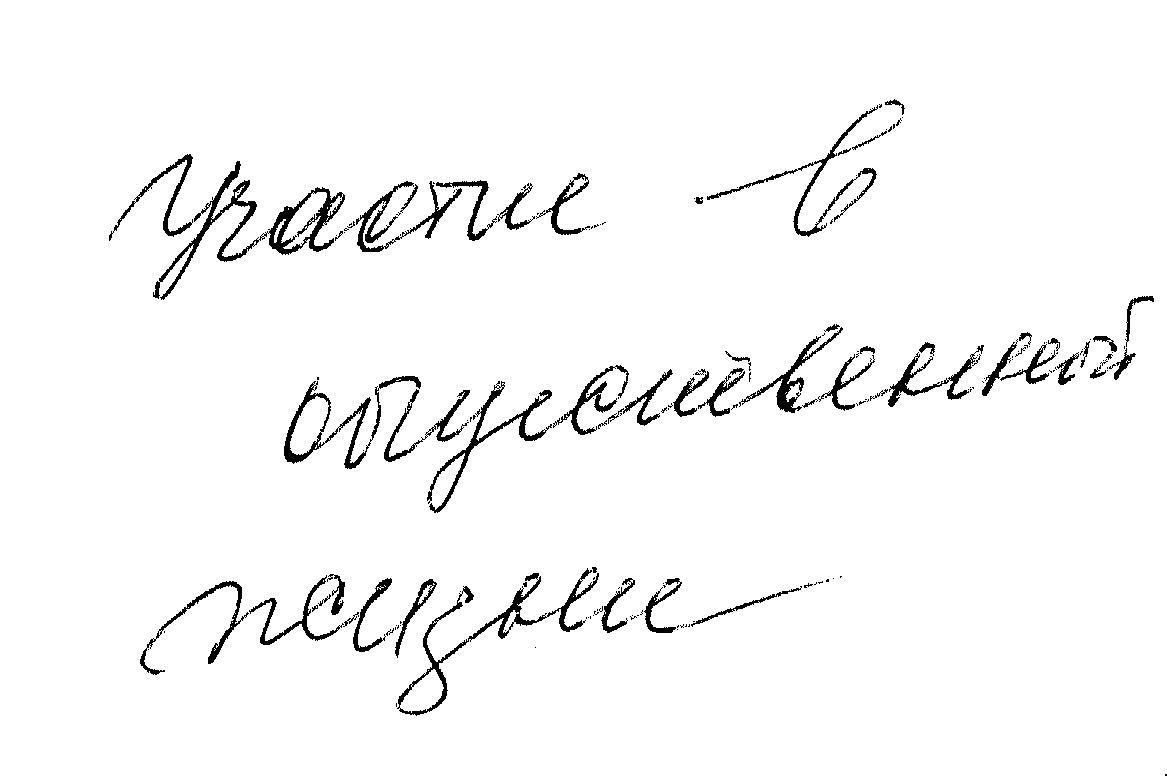 Участие в
общественной
жизни